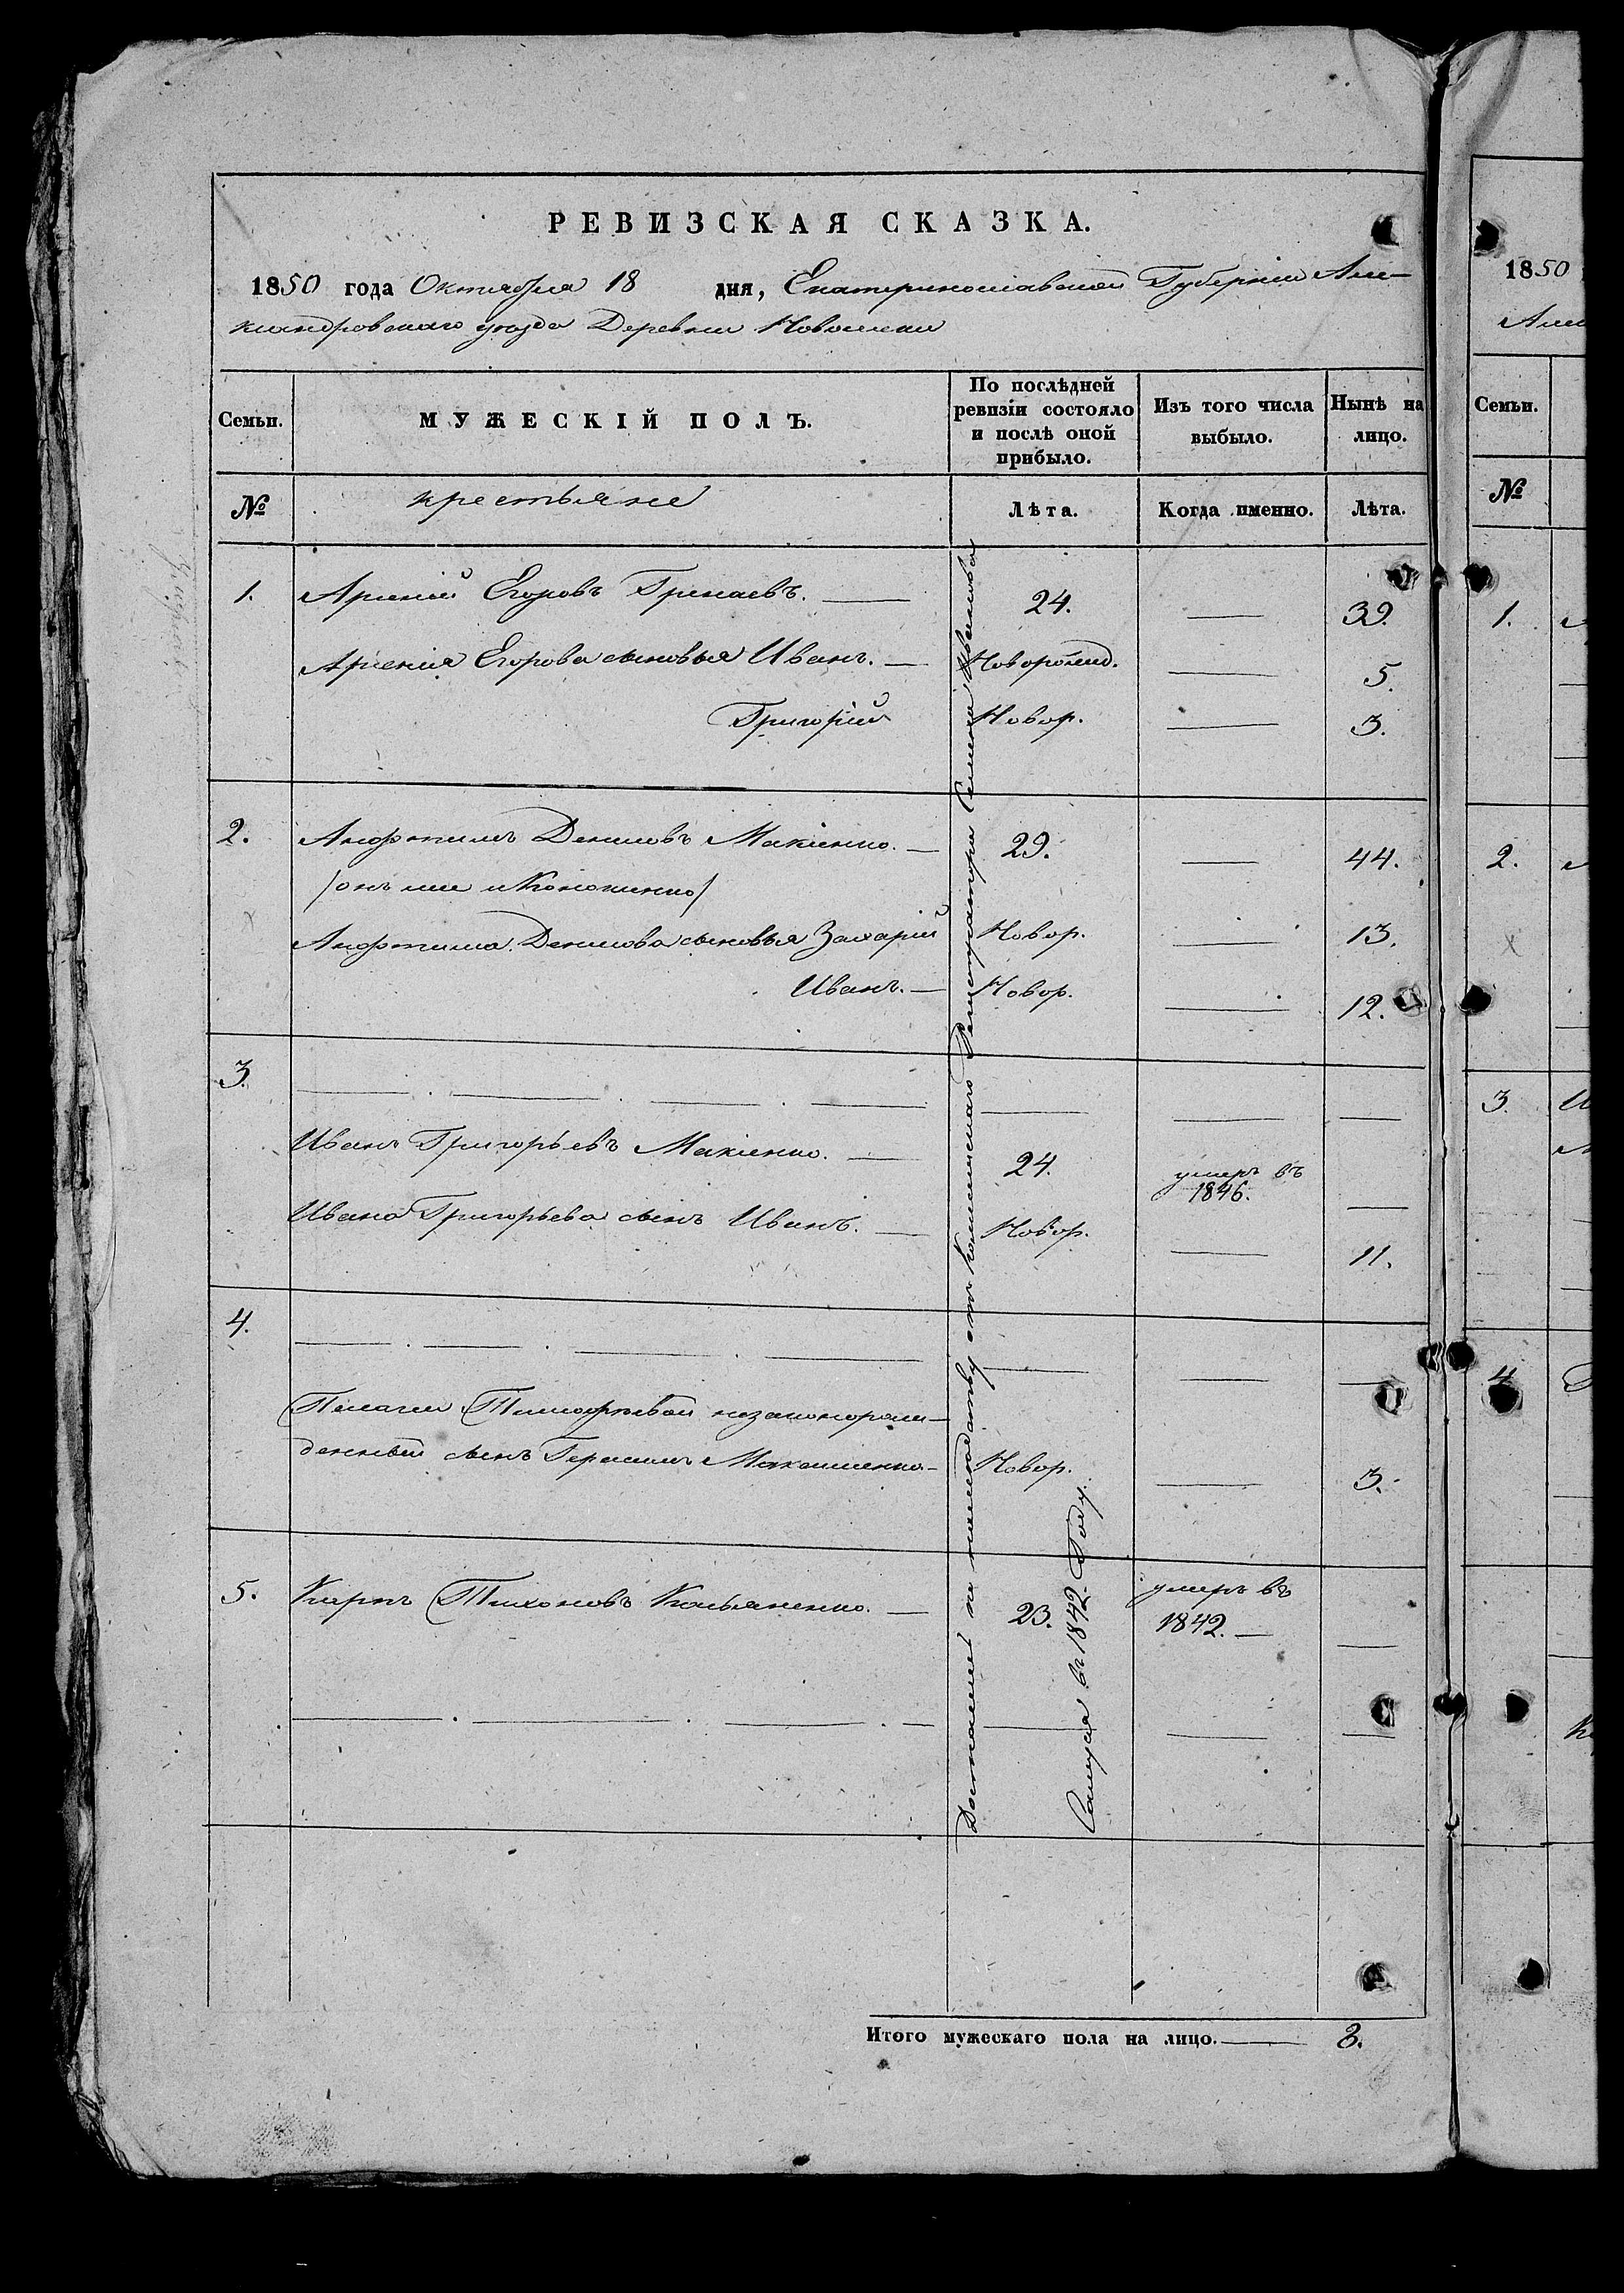 РЕВИЗСКАЯ СКАЗКА.
1850 года Октября 18 дня, Екатеринославской Губернии Але-
ксандровского уезда Деревни
Семьи.
МУЖЕСКІЙ ПОЛЪ.
По послѣдней ревизіи состояло и послѣ оной прибыло.
Изъ того числа выбыло.
Нынѣ на лицо.
№
крестьяне
Лѣта.
Когда именно.
Лѣта.
1. Арсеній Егоровъ — 24. — 39.
Арсенія Егорова сыновья Иванъ. — Новорожд. — 5.
Григорій Новор. — 3.
2. Денисовъ Макіенко. — 29. — 44.
/онъ же и Кононенко/
Денисова сыновья Захарій Новор. — 13.
Иванъ. — Новор. — 12.
3.
Иванъ Григорьевъ Макіенко. — 24. умеръ въ 1846. —
Ивана Григорьева сынъ Иванъ. — Новор. — 11.
4.
Пелагеи Тимофѣевой незаконорож-
денный сынъ Герасимъ Новор. — 3.
5. Карпъ Тихоновъ Касьяненко. — 23. умеръ въ 1842. —
Достались по наследству отъ Регистратора Семена Иванова
въ 1842 Году.
Итого мужескаго пола на лицо. — 8.
1850
Семьи.
№
1.
2.
3.
4.